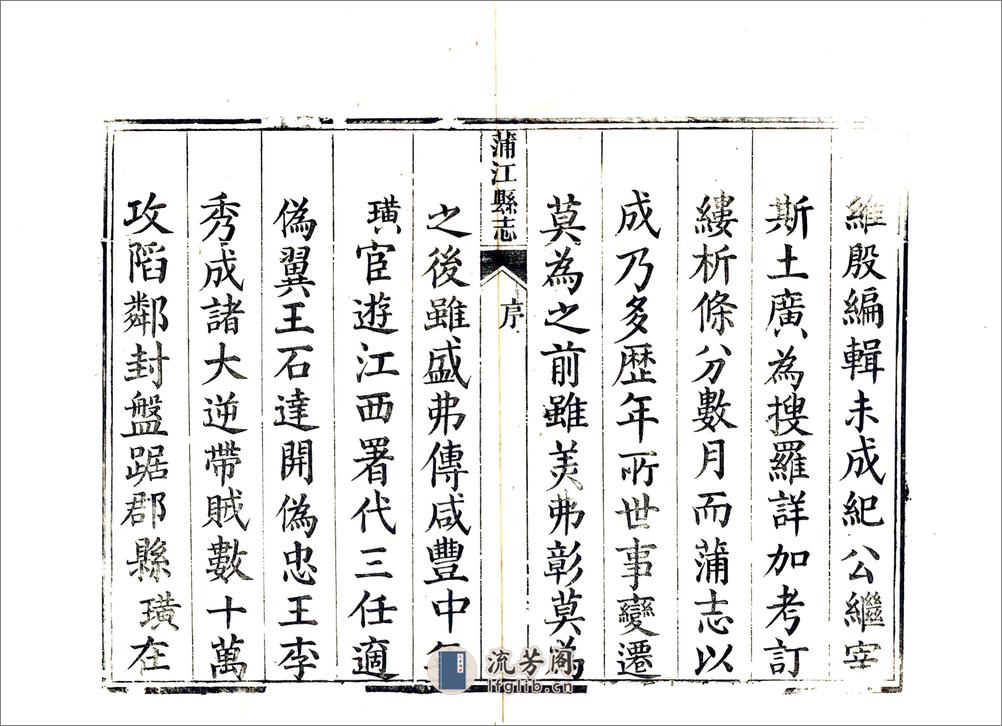 維殷編輯未成紀公繼宰
斯土廣為搜羅詳加考訂
縷析條分數月而蒲志以
成乃多歷年所世事變遷
莫為之前雖美弗彰莫為
蒲江縣志
序
之後雖盛弗傳咸豐中
璜宦遊江西署代三任適
偽翼王石達開偽忠王李
秀成諸大逆帶賊數十萬
攻陷鄰封盤踞郡縣璜在
流芳阁
lfglib.cn